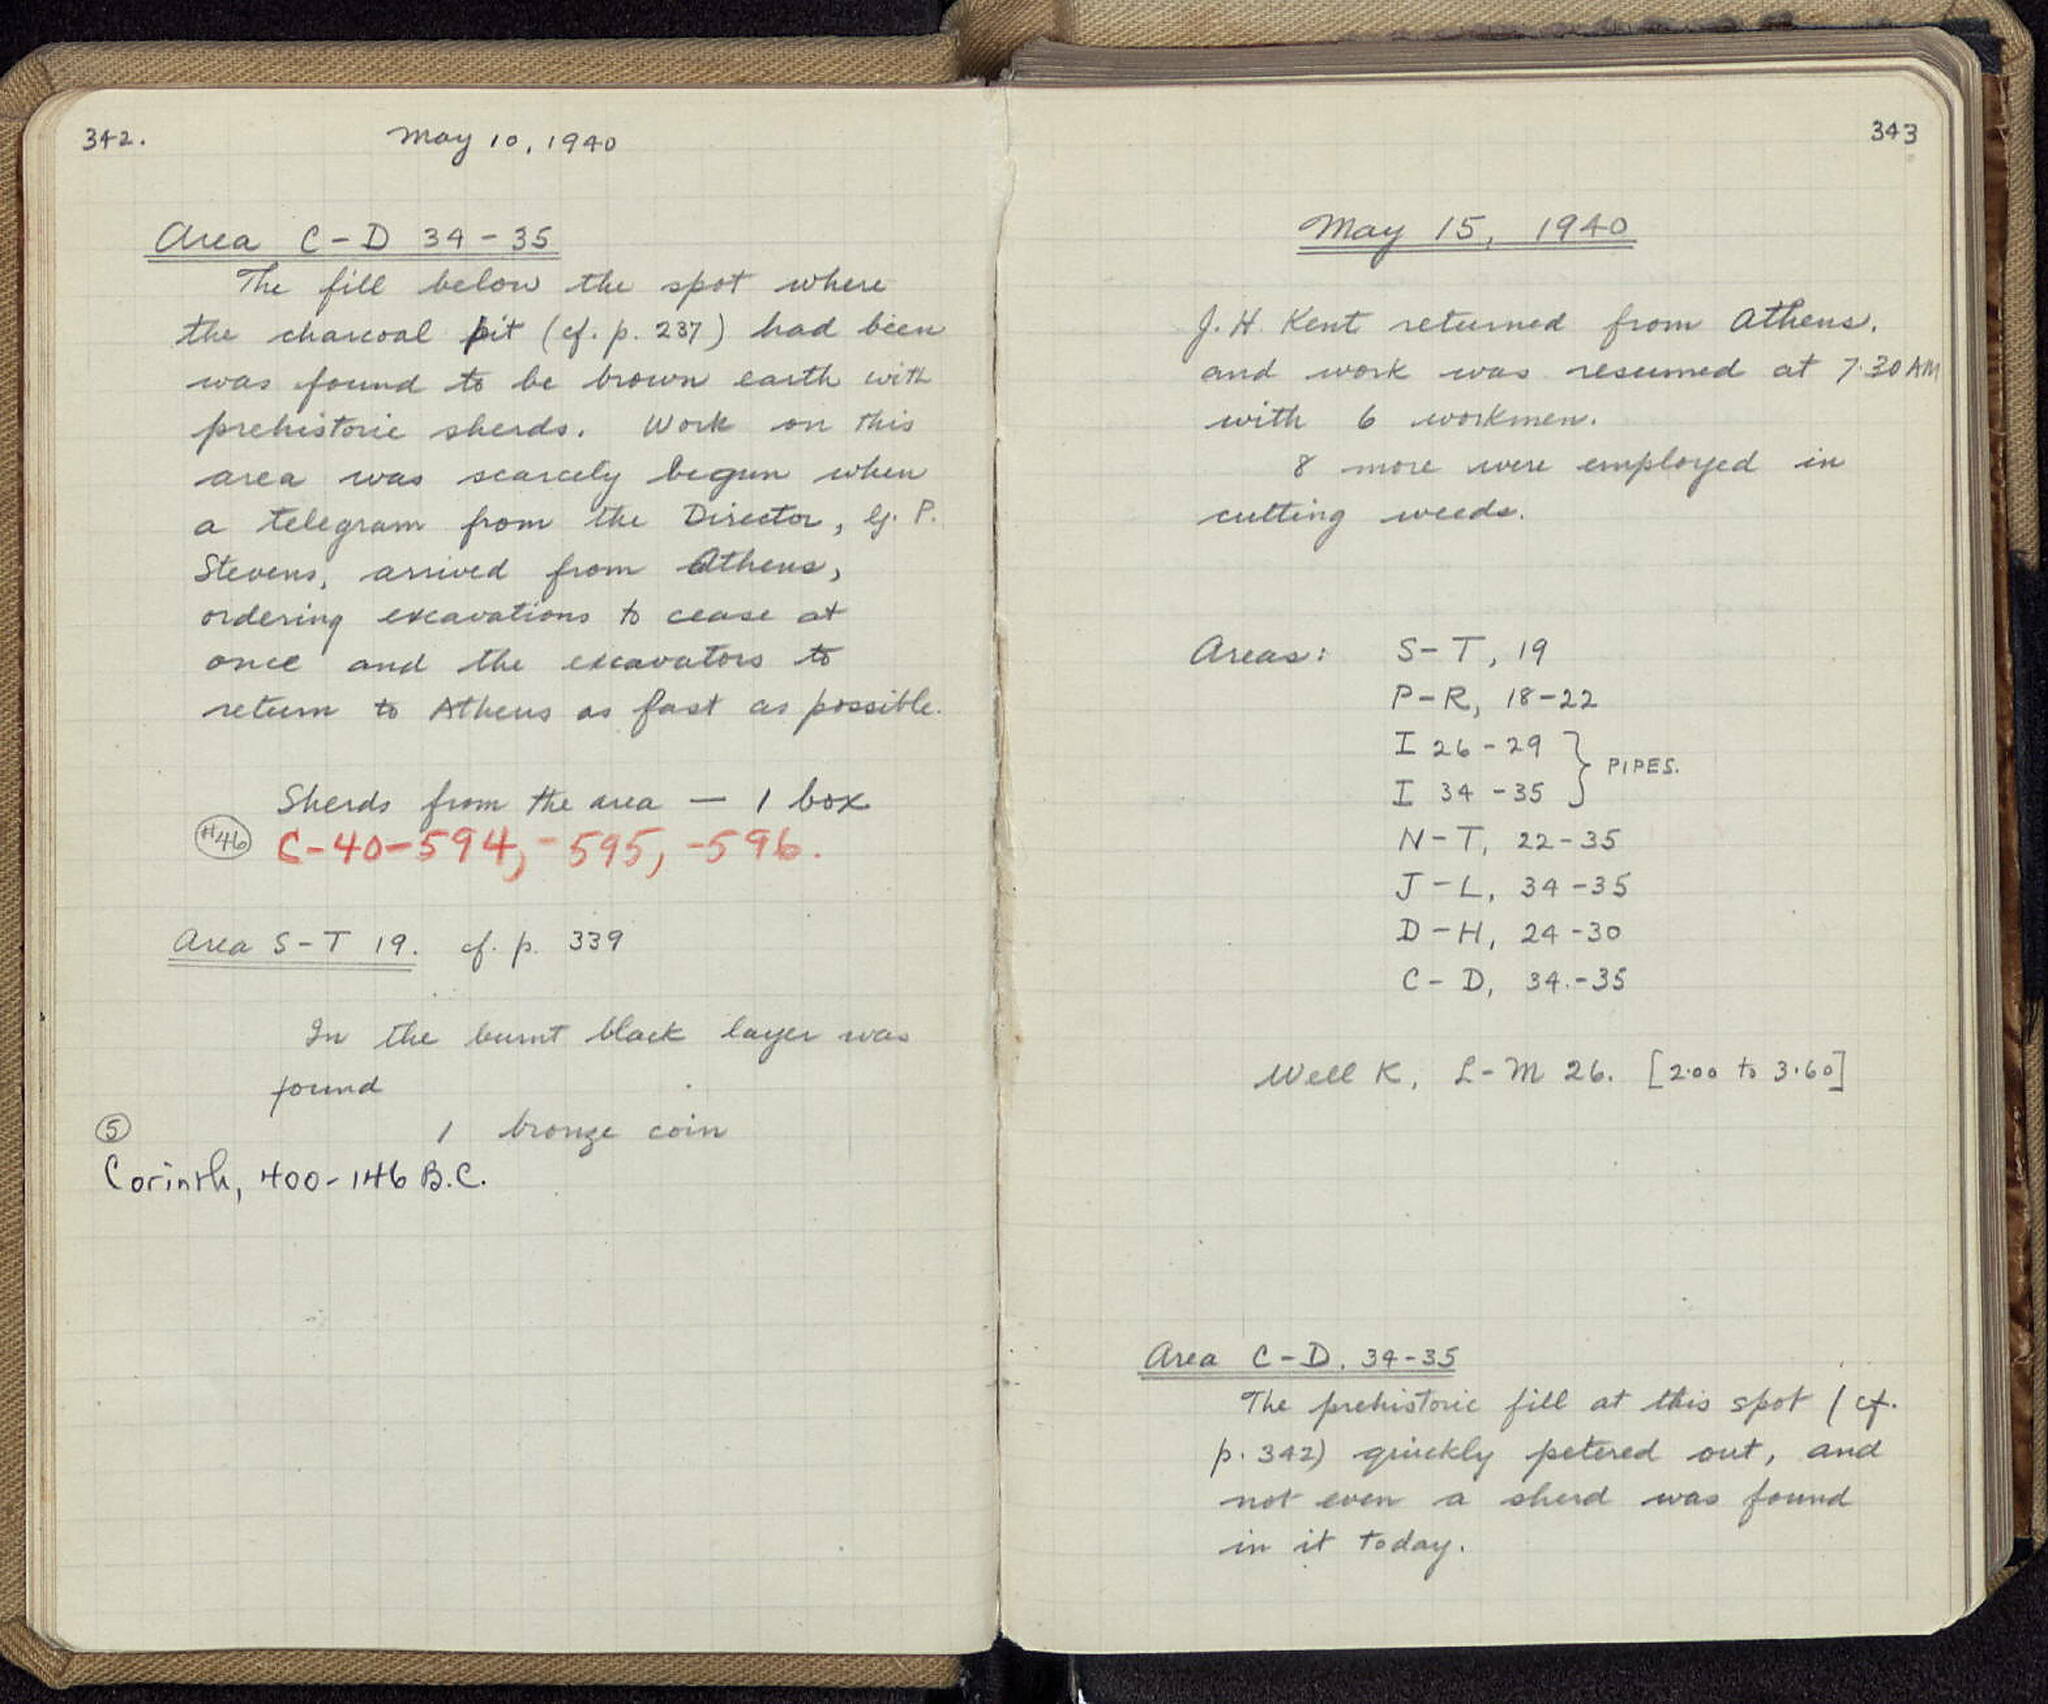 342.
May 10, 1940
Area C-D 34-35
The fill below the spot where
the charcoal pit (cf. p. 237) had been
was found to be brown earth with
prehistoric sherds. Work on this
area was scarcely begun when
a telegram from the Director, G. P.
Stevens, arrived from Athens,
ordering excavations to cease at
once and the excavators to
return to Athens as fast as possible.
Sherds from the area — 1 box
#46 C-40-594, -595, -596.
Area S-T 19. cf. p. 339
In the burnt black layer was
found
1 bronze coin
5
Corinth, 400-146 B.C.
343
May 15, 1940
J. H. Kent returned from Athens.
and work was resumed at 7.30 AM
with 6 workmen.
8 more were employed in
cutting weeds.
Areas: S-T, 19
P-R, 18-22
I 26-29
I 34-35 } PIPES.
N-T, 22-35
J-L, 34-35
D-H, 24-30
C-D, 34.-35
Well K, L-M 26. [2.00 to 3.60]
Area C-D. 34-35
The prehistoric fill at this spot (cf.
p. 342) quickly petered out, and
not even a sherd was found
in it today.